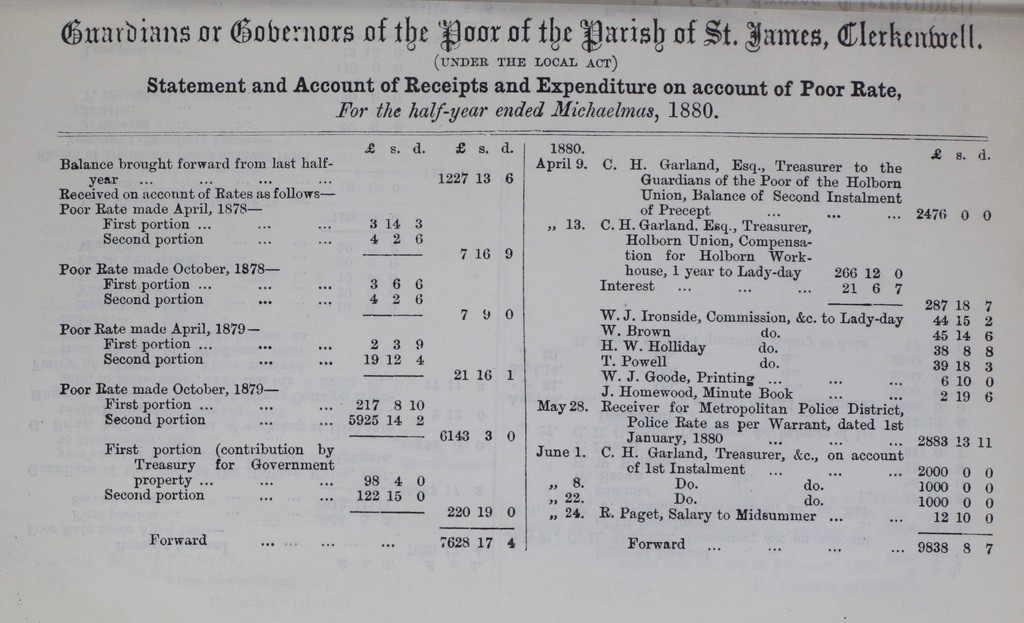 Guardians or Governors of the Poor of the Parish of St. James, Clerkenwell.
(UNDER THE LOCAL ACT)
Statement and Account of Receipts and Expenditure on account of Poor Rate,
For the half-year ended Michaelmas, 1880.
£ s. d. £ s. d.
Balance brought forward from last half-
year ... ... ... ... 1227 13 6
Received on account of Rates as follows—
Poor Rate made April, 1878—
First portion ... ... ... 3 14 3
Second portion ... ... 4 2 6
7 16 9
Poor Rate made October, 1878—
First portion ... ... ... 3 6 6
Second portion ... ... 4 2 6
7 9 0
Poor Rate made April, 1879—
First portion ... ... ... 2 3 9
Second portion ... ... 19 12 4
21 16 1
Poor Rate made October, 1879—
First portion ... ... ... 217 8 10
Second portion ... ... 5925 14 2
6143 3 0
First portion (contribution by
Treasury for Government
property ... ... ... 98 4 0
Second portion ... ... 122 15 0
220 19 0
Forward ... ... ... 7628 17 4
1880. £ s. d.
April 9. C. H. Garland, Esq., Treasurer to the
Guardians of the Poor of the Holborn
Union, Balance of Second Instalment
of Precept ... ... ... 2476 0 0
„ 13. C. H. Garland, Esq., Treasurer,
Holborn Union, Compensa-
tion for Holborn Work-
house, 1 year to Lady-day 266 12 0
Interest ... ... ... 21 6 7
287 18 7
W. J. Ironside, Commission, &c. to Lady-day 44 15 2
W. Brown do. 45 14 6
H. W. Holliday do. 38 8 8
T. Powell do. 39 18 3
W. J. Goode, Printing ... ... ... 6 10 0
J. Homewood, Minute Book ... ... 2 19 6
May 28. Receiver for Metropolitan Police District,
Police Rate as per Warrant, dated 1st
January, 1880 ... ... ... 2883 13 11
June 1. C. H. Garland, Treasurer, &c., on account
of 1st Instalment ... ... ... 2000 0 0
„ 8. Do. do. 1000 0 0
„ 22. Do. do. 1000 0 0
„ 24. R. Paget, Salary to Midsummer ... ... 12 10 0
Forward ... ... ... ... 9838 8 7